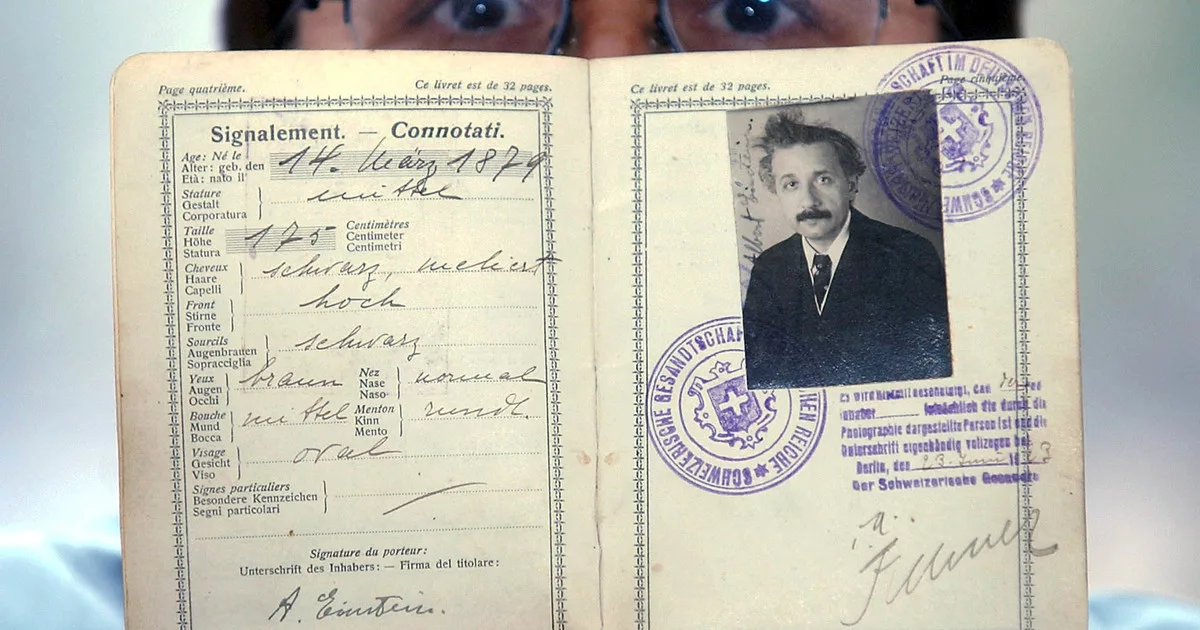 Page quatrième. Ce livret est de 32 pages.
Signalement. — Connotati.
Age: Né le
Alter: geb. den 14. März 1879
Età: nato il
Stature
Gestalt mittel
Corporatura
Taille Centimètres
Höhe 175 Centimeter
Statura Centimetri
Cheveux
Haare schwarz, meliert
Capelli
Front
Stirne hoch
Fronte
Sourcils
Augenbrauen schwarz
Sopracciglia
Yeux Nez
Augen braun Nase normal
Occhi Naso
Bouche Menton
Mund mittel Kinn rund.
Bocca Mento
Visage
Gesicht oval
Viso
Signes particuliers
Besondere Kennzeichen
Segni particolari
Signature du porteur:
Unterschrift des Inhabers: — Firma del titolare:
A. Einstein.
Ce livret est de 32 pages. Page cinquième.
Albert Einstein
SCHWEIZERISCHE GESANDTSCHAFT
SCHWEIZERISCHE
REICHE
Photographie dargestellte Person ist und die
Unterschrift eigenhändig vollzogen
Berlin, den 23. Juni 1923
Der Schweizerische